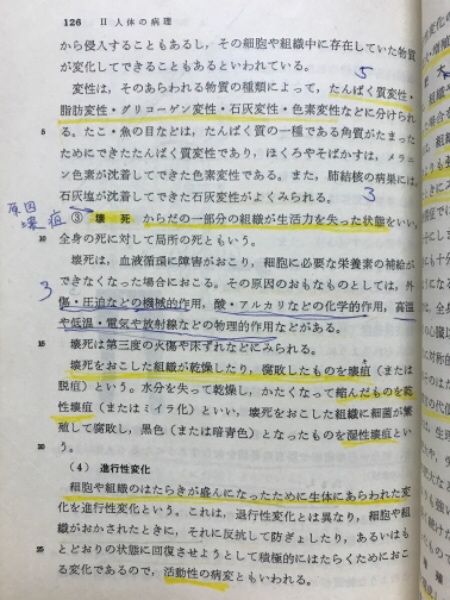 126 II 人体の病理
から侵入することもあるし，その細胞や組織中に存在していた物質
が変化してできることもあるといわれている。
5
変性は，そのあらわれる物質の種類によって，たんぱく質変性・
脂肪変性・グリコーゲン変性・石灰変性・色素変性などに分けられ
5 る。たこ・魚の目などは，たんぱく質の一種である角質がたまった
ためにできたたんぱく質変性であり，ほくろやそばかすは，メラニ
ン色素が沈着してできた色素変性である。また，肺結核の病巣には，
石灰塩が沈着してできた石灰変性がよくみられる。
3
原因
壊疽
③ 壊死 からだの一部分の組織が生活力を失った状態をいい，
10 全身の死に対して局所の死ともいう。
壊死は，血液循環に障害がおこり，細胞に必要な栄養素の補給が
できなくなった場合におこる。その原因のおもなものとしては，外
3
傷・圧迫などの機械的作用，酸・アルカリなどの化学的作用，高温
や低温・電気や放射線などの物理的作用などがある。
15 壊死は第三度の火傷や床ずれなどにみられる。
壊死をおこした組織が乾燥したり，腐敗したものを壊疽（または
脱疽）という。水分を失って乾燥し，かたくなって縮んだものを乾
性壊疽（またはミイラ化）といい，壊死をおこした組織に細菌が繁
殖して腐敗し，黒色（または暗青色）となったものを湿性壊疽とい
20 う。
（4） 進行性変化
細胞や組織のはたらきが盛んになったために生体にあらわれた変
化を進行性変化という。これは，退行性変化とは異なり，細胞や組
織がおかされたときに，それに反抗して防ぎょしたり，あるいはも
25 とどおりの状態に回復させようとして積極的にはたらくためにおこ
る変化であるので，活動性の病変ともいわれる。